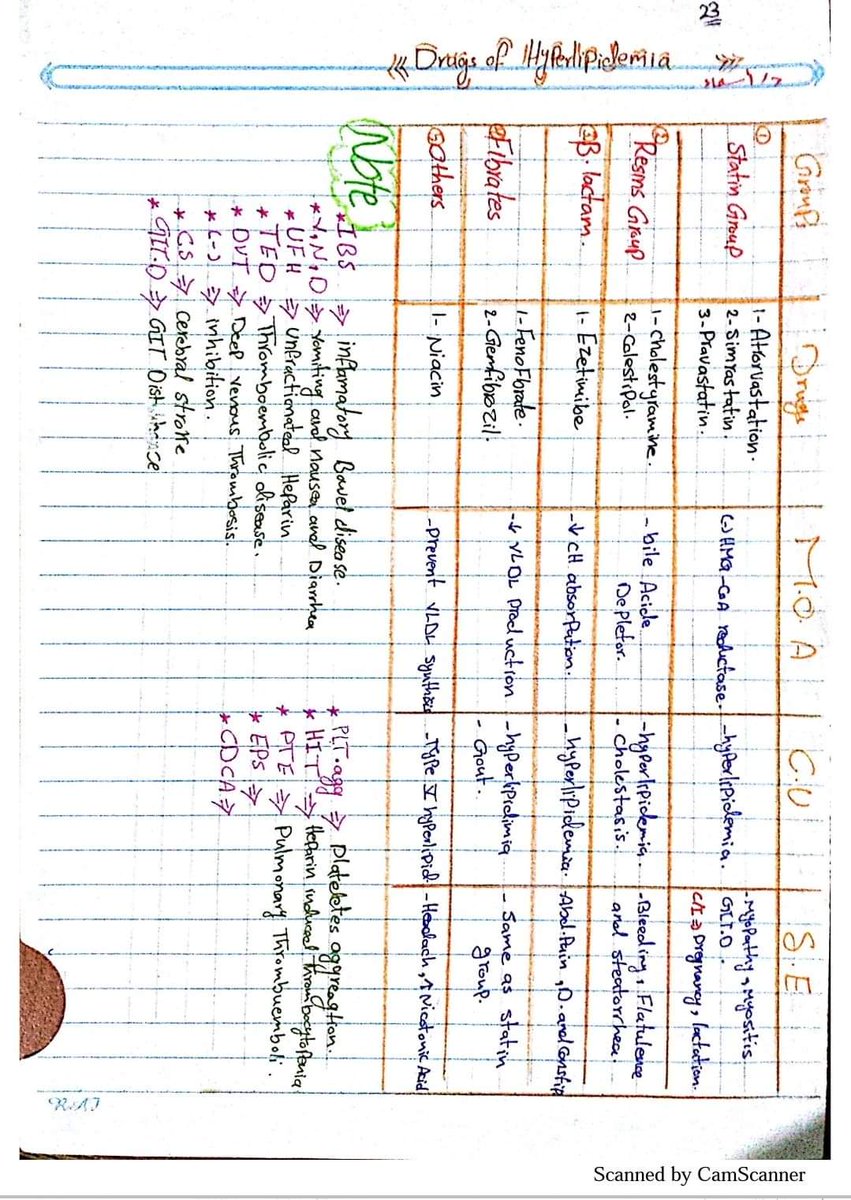 23
Drugs of Hyperlipidemia
Groups
Drugs
M.O.A
C.U
S.E
① Statin Group
1- Atrorvastation.
2- Simrastatin.
3- Pravastatin.
(-) HMG-CoA reductase.
- hyperlipidemia.
- Myopathy, Myositis
GIT.D.
C/I ⇒ Pregnancy, lactation.
② Resins Group
1- Cholestyramine.
2- Colestipol.
- bile Acide
Depletor.
- hyperlipidemia.
- Cholestasis.
- Bleeding, Flatulence
and steatorrhea.
③ B. lactam.
1- Ezetimibe
- ↓ CH absorpation.
- hyperlipidemia.
- Abd. Pain, D. and Constip
④ Fibrates
1- Fenofibrate.
2- Gemfibrozil.
- ↓ VLDL Production
- hyperlipidimia
- Gout.
- Same as statin
group.
⑤ Others
1- Niacin
- Prevent VLDL Synthises
- Type V hyperlipid.
- Headach, ↑ Nicotonic Acid
Note
* IBS ⇒ inflamatory Bowel disease.
* V, N, D ⇒ vomiting and nausea and Diarrhea
* UFH ⇒ unfractionated Heparin
* TED ⇒ Thromboembolic disease.
* DVT ⇒ Deep venous Thrombosis.
* (-) ⇒ inhibition.
* C.S ⇒ cerebral stroke
* GIT.D ⇒ GIT Disturbance
* PLT. agg ⇒ Plateletes aggreagtion.
* HIT ⇒ Heparin induced thrombocytopenia
* PTE ⇒ Pulmonary Thrombuemboli.
* EPS ⇒
* CDCA ⇒
Scanned by CamScanner